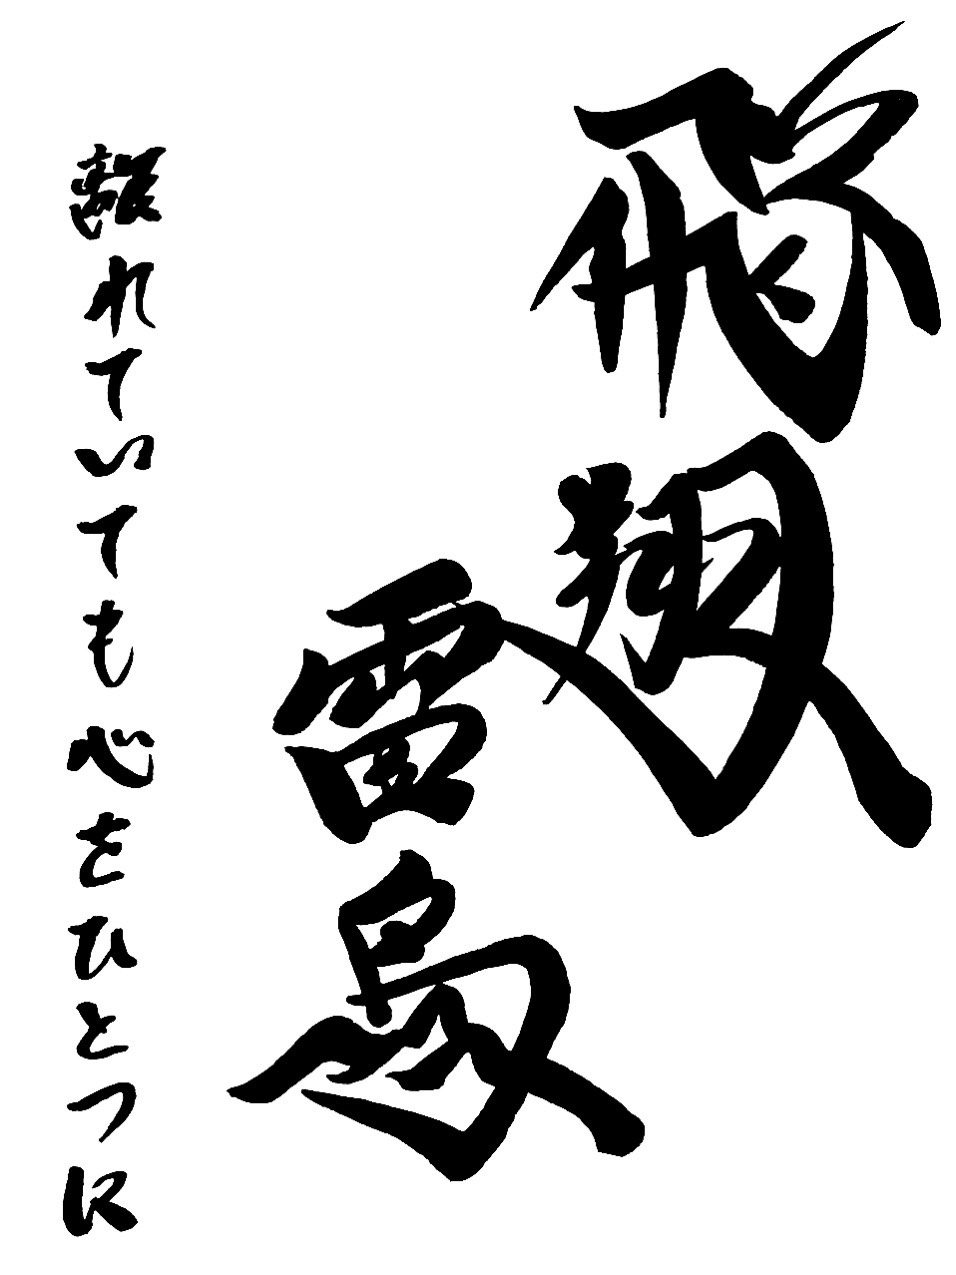 飛翔
雷鳥
離れていても心をひとつに